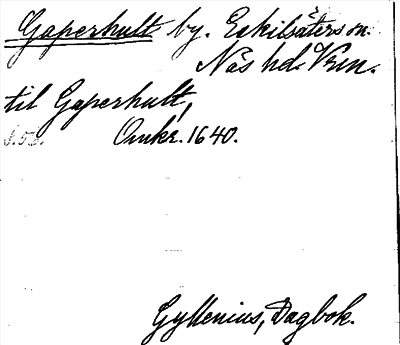 Gaperhult by. Eskilsäters sn.
Näs hd. Vrm.
til Gaperhult,
s. 53. Omkr. 1640.
Gyllenius, Dagbok.